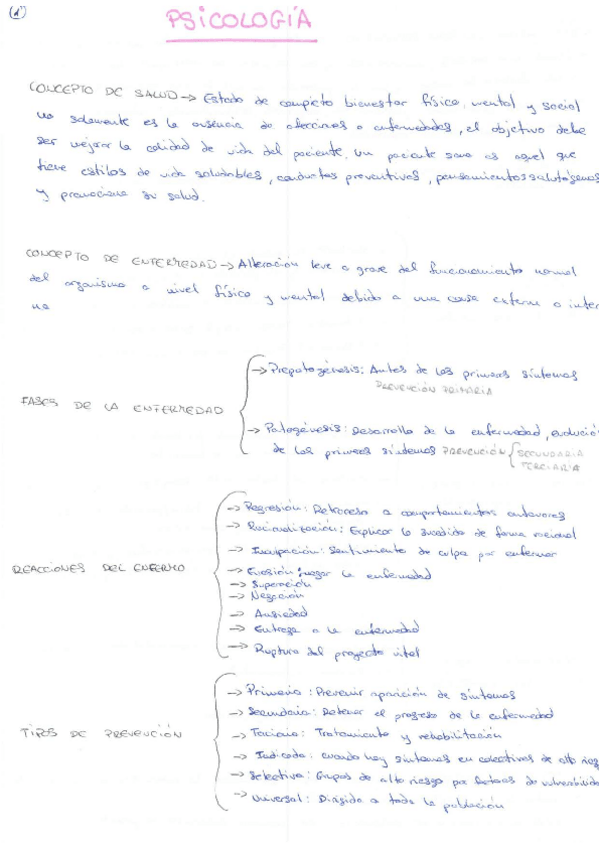 (1)
PSICOLOGÍA
CONCEPTO DE SALUD → Estado de completo bienestar físico, mental y social
no solamente es la ausencia de afecciones o enfermedades, el objetivo debe
ser mejorar la calidad de vida del paciente. Un paciente sano es aquel que
tiene estilos de vida saludables, conductas preventivas, pensamientos salutógenos
y promociona su salud.
CONCEPTO DE ENFERMEDAD → Alteración leve o grave del funcionamiento normal
del organismo a nivel físico y mental debido a una causa externa o inter
na
FASES DE LA ENFERMEDAD
→ Prepatogénesis: Antes de los primeros síntomas
PREVENCIÓN PRIMARIA
→ Patogénesis: Desarrollo de la enfermedad, evolució
de los primeros síntomas PREVENCIÓN { SECUNDARIA
TERCIARIA
REACCIONES DEL ENFERMO
→ Regresión: Retroceso a comportamientos anteriores
→ Racionalización: Explicar lo sucedido de forma racional
→ Inculpación: Sentimiento de culpa por enfermar
→ Evasión: negar la enfermedad
→ Superación
→ Negación
→ Ansiedad
→ Entrega a la enfermedad
→ Ruptura del proyecto vital
TIPOS DE PREVENCIÓN
→ Primaria: Prevenir aparición de síntomas
→ Secundaria: Detener el progreso de la enfermedad
→ Terciaria: Tratamiento y rehabilitación
→ Indicada: cuando hay síntomas en colectivos de alto ries
→ Selectiva: Grupos de alto riesgo por factores de vulnerabilida
→ Universal: Dirigida a toda la población